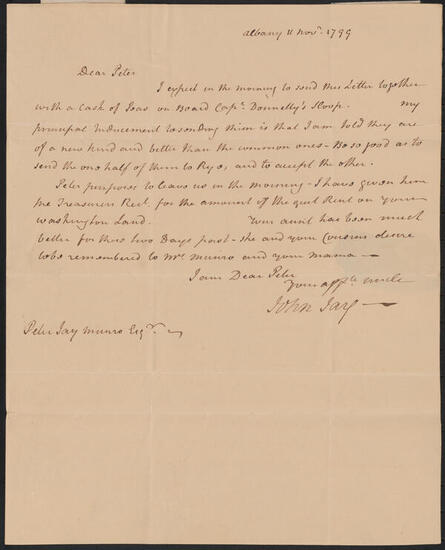 Albany 11 Nov.r 1799
Dear Peter
I expect in the morning to send this Letter together
with a Cask of Peas on Board Capt. Donnelly's Sloop. my
principal Inducement to sending them is that I am told they are
of a new kind and better than the common ones - Be so good as to
send the one half of them to Rye, and to accept the other.
Peter purposes to leave us in the morning - I have given him
the Treasurers Rect. for the amount of the quit Rent on your
Washington Land. Your aunt has been much
better for these two Days past - she and your Cousins desire
to be remembered to Mrs. Munro and your Mama —
I am Dear Peter
Your affte. uncle
John Jay —
Peter Jay Munro Esqr.